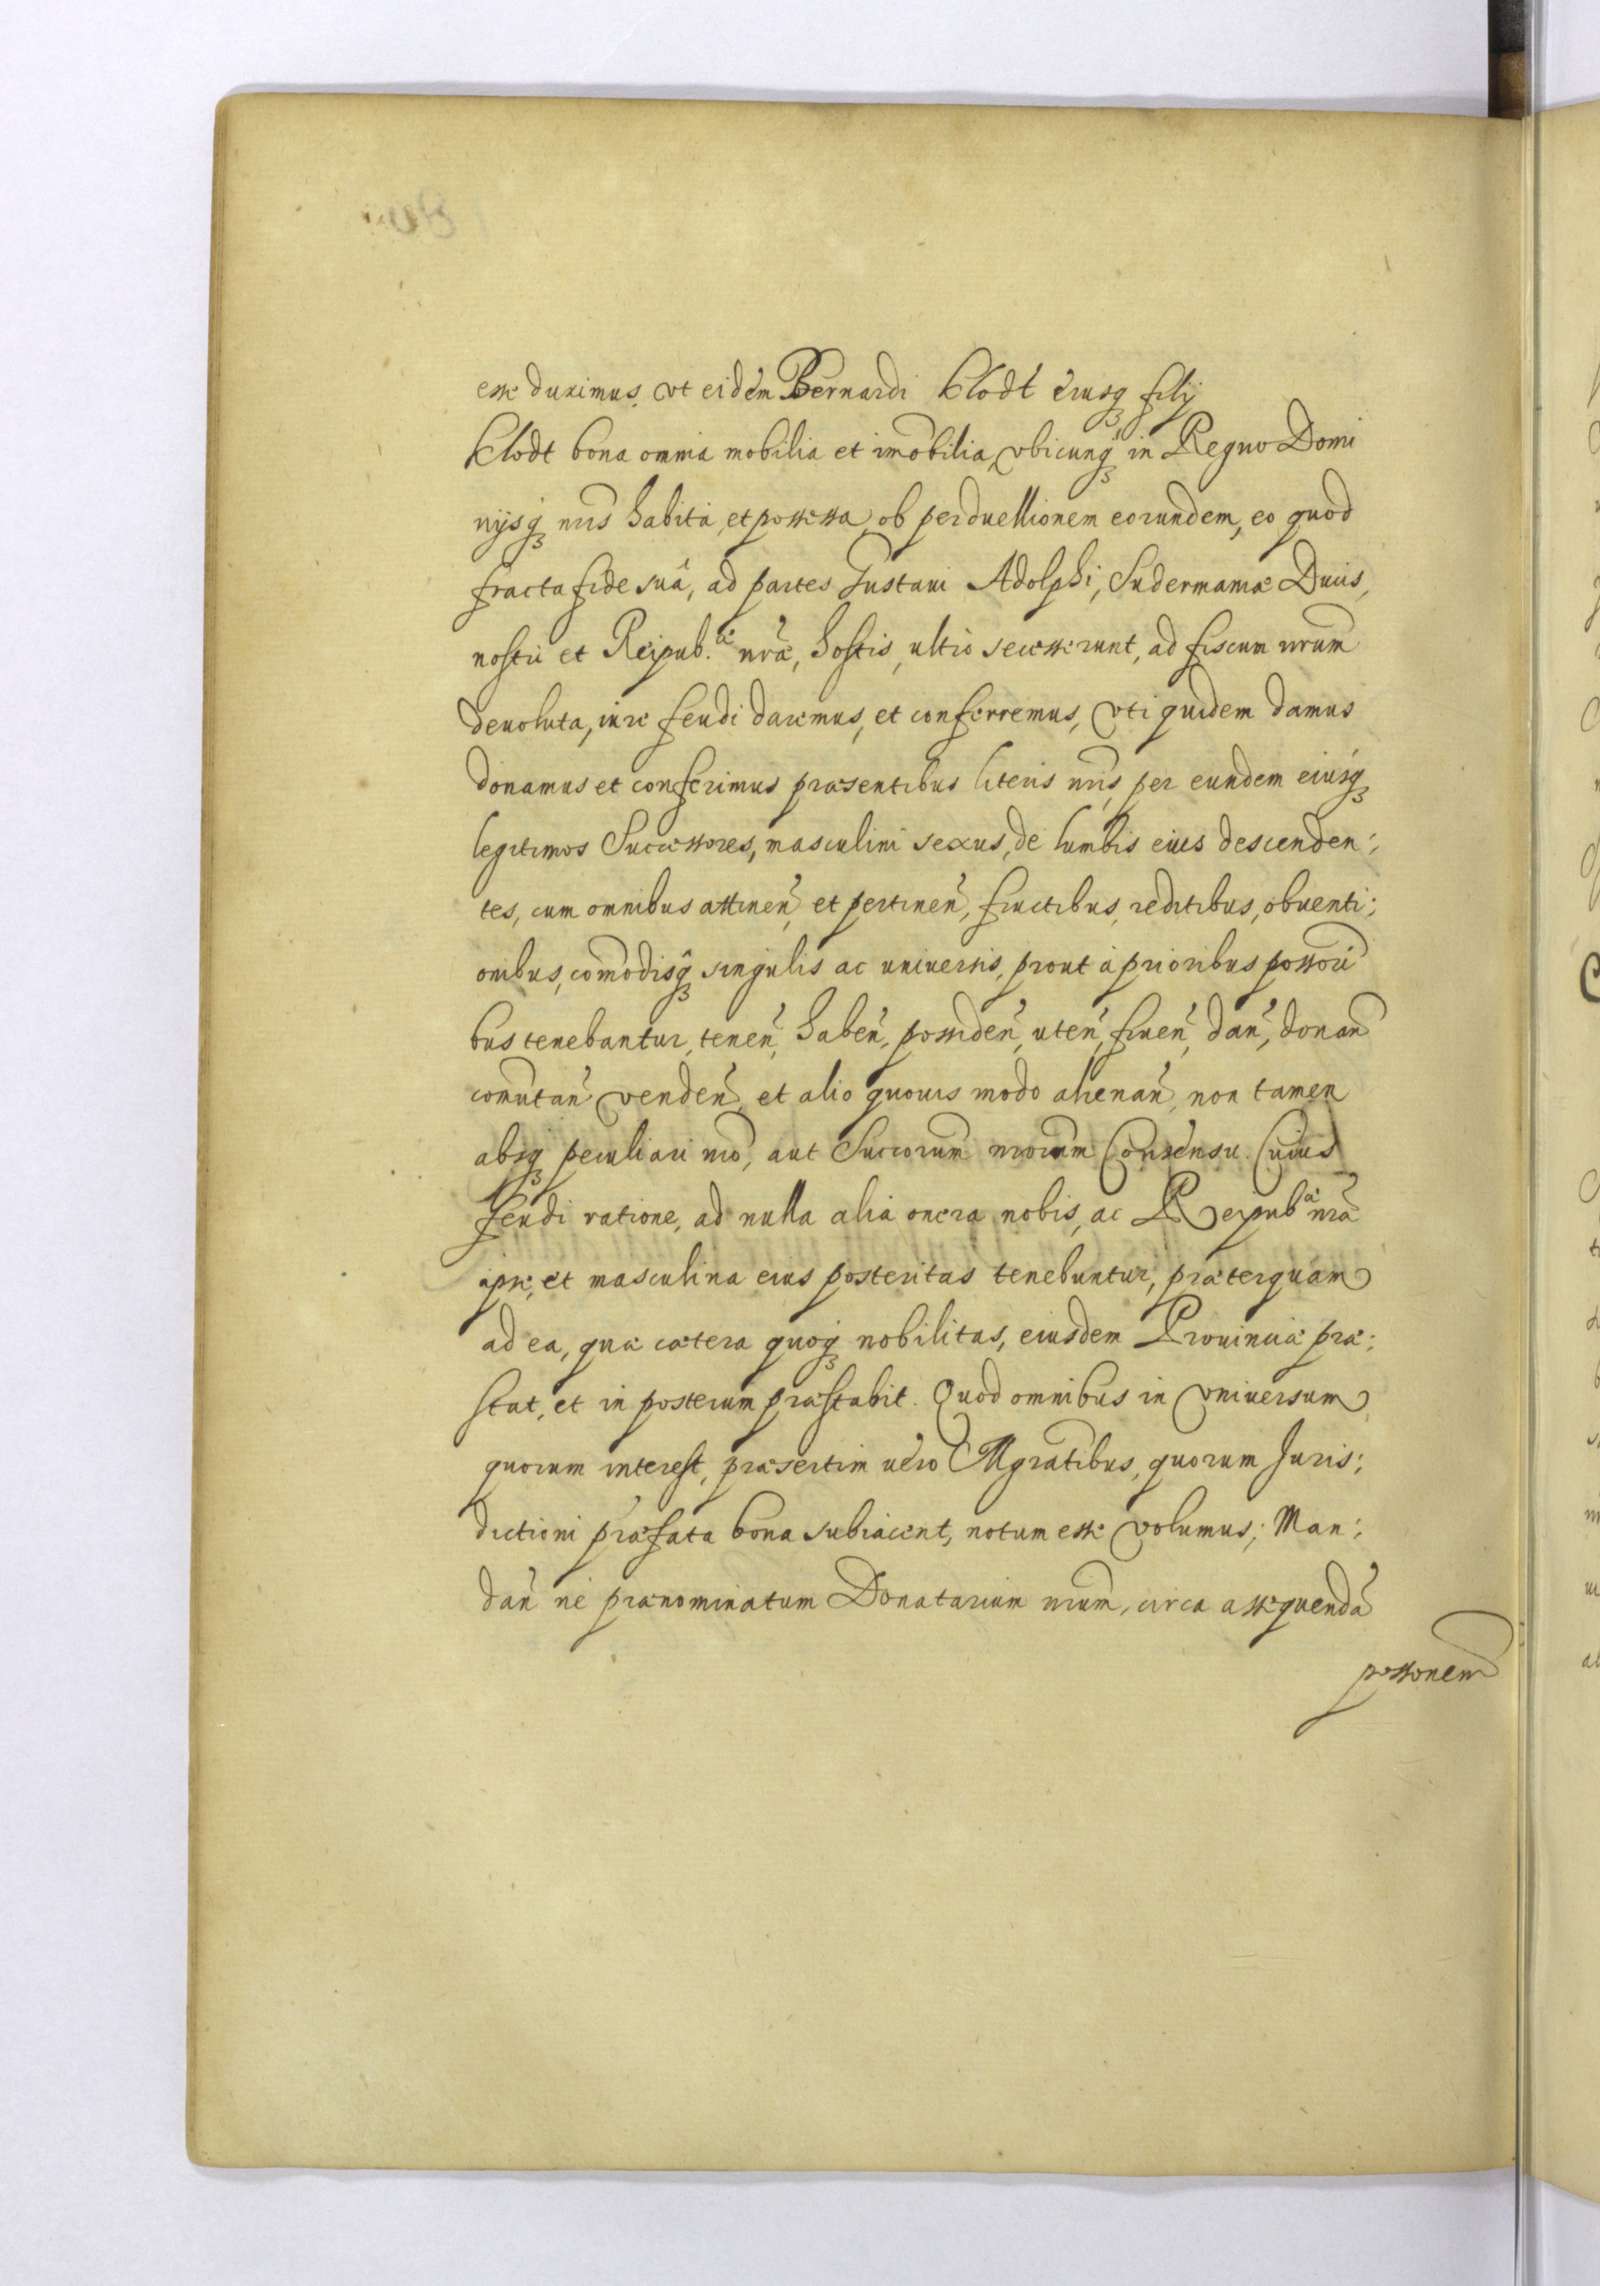 esse duximus, vt eidem Bernardi Klodt eiusq3 filij
Klodt bona omnia mobilia et im̃obilia, vbicunq3 in Regno Domi
nijsq3 nr̃is habita, et possessa, ob perduellionem eorundem, eo quod
fracta fide suâ, ad partes Gustavi Adolphi, Sudermaniæ Ducis,
nostri et Reipub.cæ nr̃æ, hostis, ultro secesserunt, ad fiscum nr̃um
devoluta, iure feudi daremus, et conferremus, vti quidem damus
donamus et conferimus præsentibus literis nr̃is, per eundem eiusq3
legitimos Successores, masculini sexus, de lumbis eius descenden:
tes, cum omnibus attineñ, et pertineñ, fructibus, reditibus, obventi:
onibus, com̃odisq3 singulis ac universis, prout à prioribus possori
bus tenebantur, teneñ, habeñ, possideñ, uteñ, frueñ, dañ, donañ
com̃utañ vendeñ, et alio quovis modo alienañ, non tamen
absq3 peculiari nr̃o, aut Succorum nr̃orum Consensu. Cuius
feudi ratione, ad nulla alia onera nobis, ac Reipub.cæ nr̃æ
ipse, et masculina eius posteritas tenebuntur, præterquam
ad ea, quæ cætera quoq3 nobilitas, eiusdem Provinciæ præ:
stat, et in posterum præstabit. Quod omnibus in vniversum
quorum interest, præsertim vero Mgratibus, quorum Juris:
dictioni præfata bona subiacent, notum esse volumus; Man:
dañ ne prænominatum Donatarium nr̃um, circa assequendã
possonem